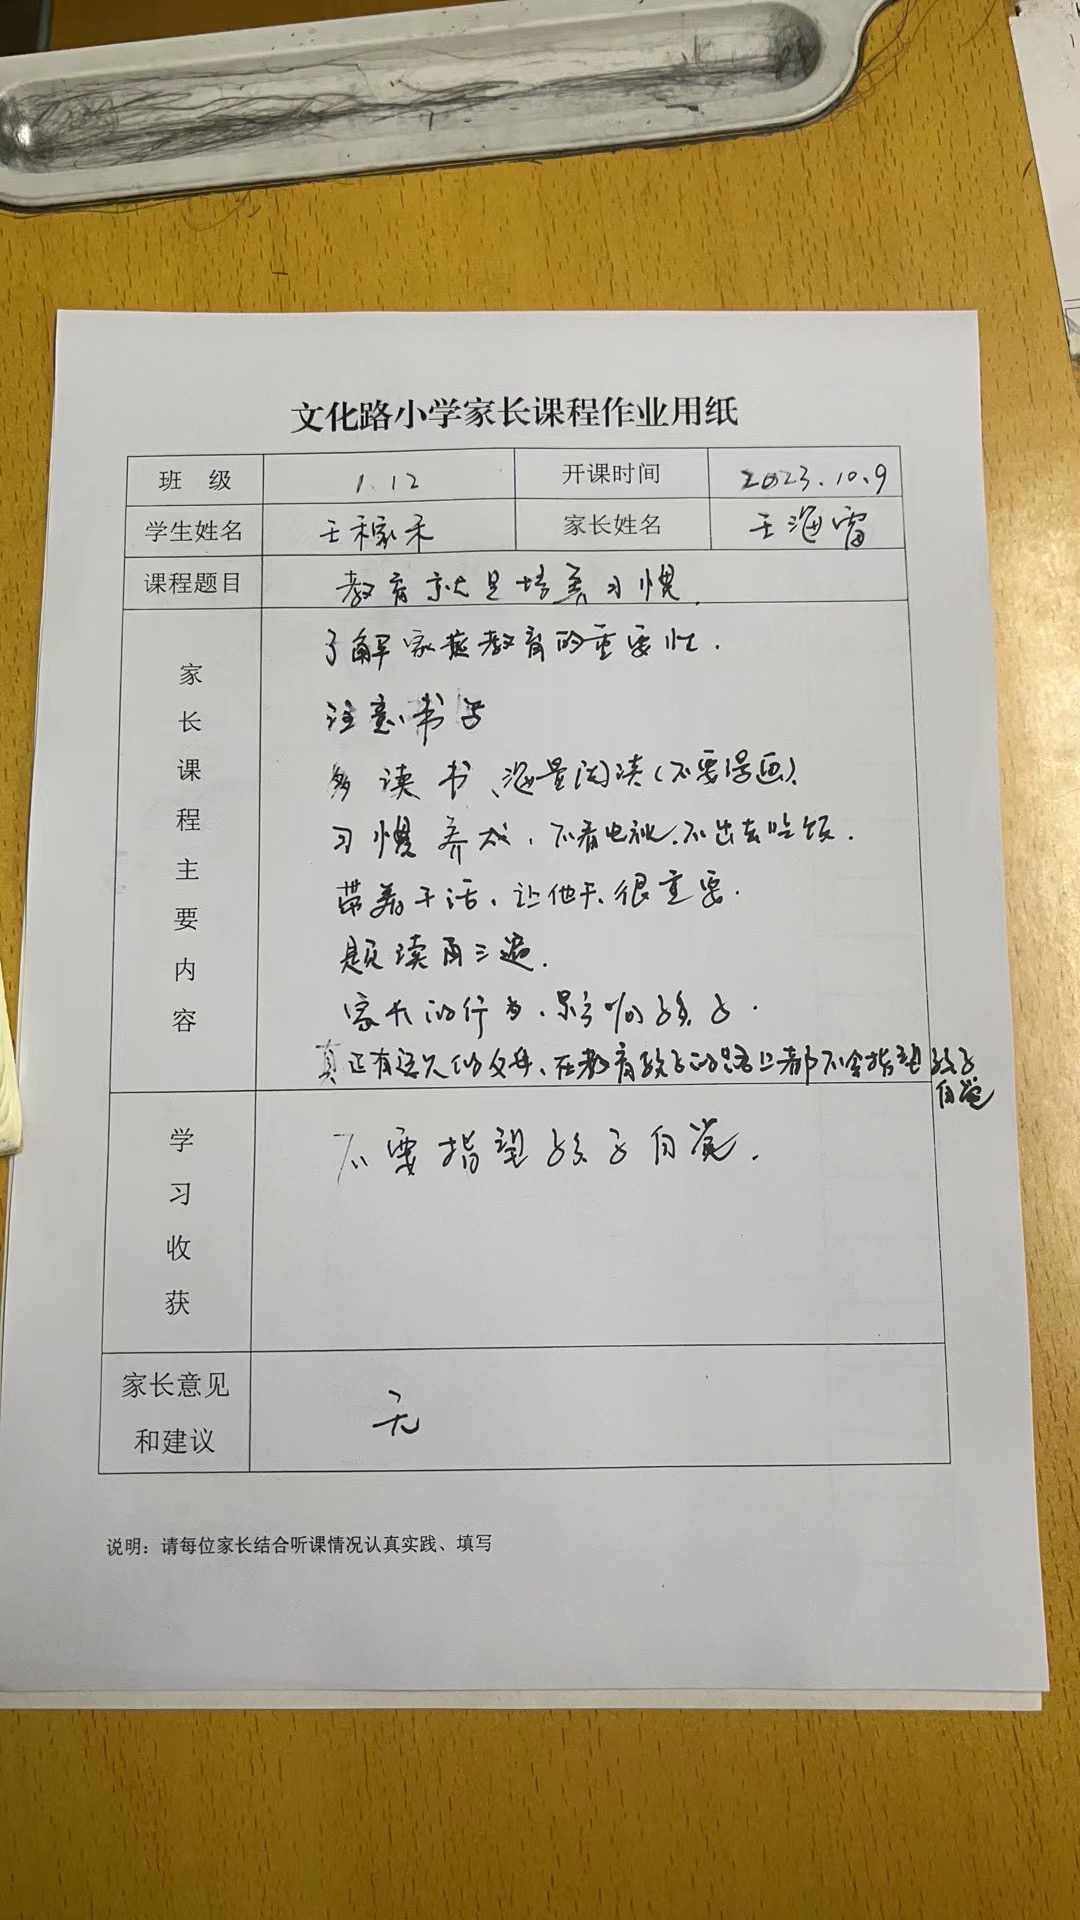 文化路小学家长课程作业用纸
班 级 1.12 开课时间 2023.10.9
学生姓名 王稼禾 家长姓名 王海雷
课程题目 教育就是培养习惯.
家长课程主要内容
了解家庭教育的重要性.
注意书写
多读书、海量阅读(不要漫画)、
习惯养成,不看电视.不出去吃饭.
带着干活、让他干、很重要.
题读两三遍.
家长的行为、影响孩子.
真正有远见的父母、在教育孩子的路上都不会指望孩子
自觉
学习收获
不要指望孩子自觉.
家长意见和建议 无
说明：请每位家长结合听课情况认真实践、填写